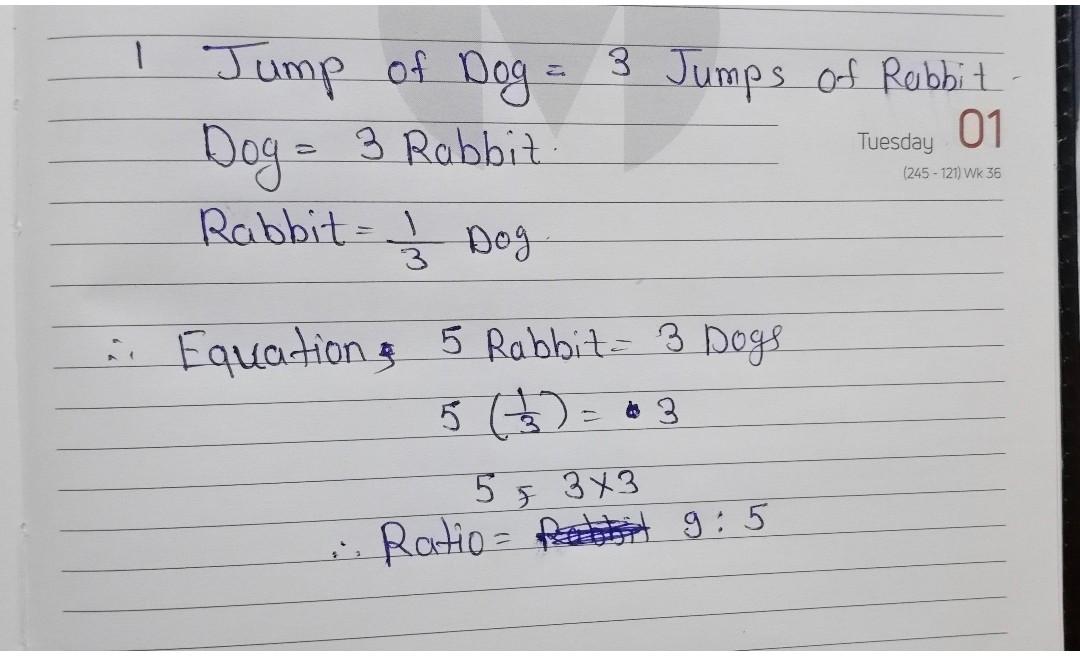 1 Jump of Dog = 3 Jumps of Rabbit
Dog = 3 Rabbit.
Tuesday 01
(245 - 121) Wk 36
Rabbit = 1/3 Dog.
∴ Equation, 5 Rabbit = 3 Dogs
5 (1/3) = 3
5 = 3×3
∴ Ratio = 9 : 5